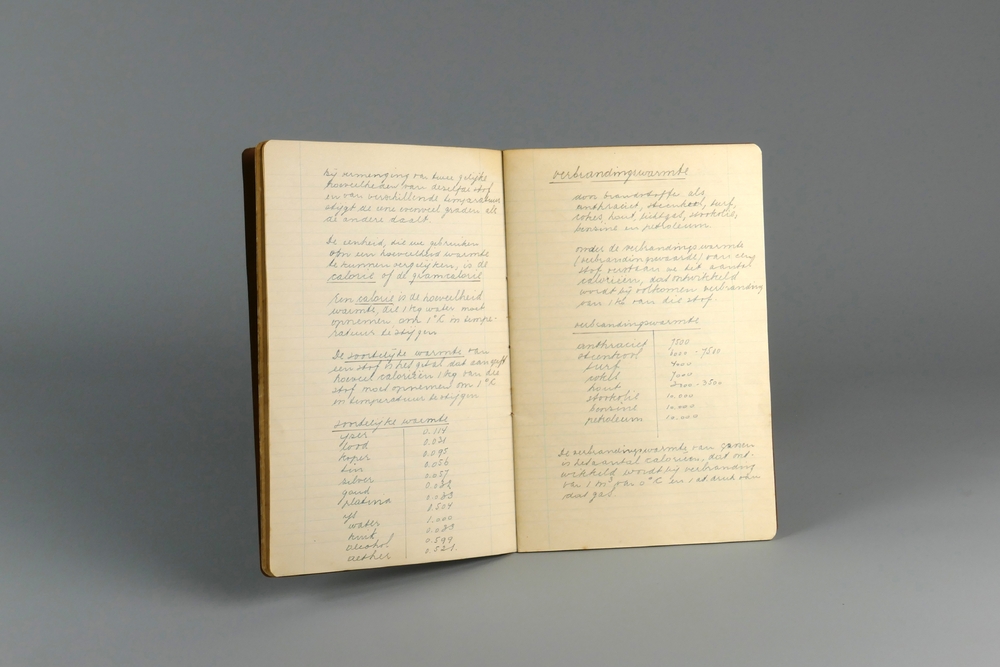 Bij vermenging van twee gelijke
hoeveelheden van dezelfde stof
en van verschillende temperaturen
stijgt de eene evenveel graden als
de andere daalt.
De eenheid, die we gebruiken
om een hoeveelheid warmte
te kunnen vergelijken, is de
calorie of de gramcalorie
Een calorie is de hoeveelheid
warmte, die 1 kg water moet
opnemen om 1°C in tempe-
ratuur te stijgen
De soortelijke warmte van
een stof is het getal dat aangeeft
hoeveel calorieën 1 kg van die
stof moet opnemen om 1°C
in temperatuur te stijgen
soortelijke warmte
yzer 0.114
lood 0.031
koper 0.095
tin 0.056
zilver 0.057
goud
platina
ijs 0.504
water 1.000
kwik 0.033
alcohol 0.599
aether 0.521
verbrandingswarmte
van brandstoffe als
anthraciet, steenkool, turf,
cokes, hout, lichtgas, stookolie,
benzine en petroleum.
onder de verbrandings warmte
(verbrandingswaarde) van eenig
stof verstaan we het aantal
calorieën, dat ontwikkeld
wordt bij volkomen verbranding
van 1 kg van die stof.
verbrandingswarmte
anthraciet 7500
steenkool 6000 - 7500
turf 4000
cokes 7000
hout - 3500
stookolie 10.000
benzine 10.000
petroleum 10.000
De verbrandingswarmte van gassen
is het aantal calorieën, dat ont-
wikkeld wordt bij verbranding
van 1 m³ van 0°C en 1 at druk van
dat gas.